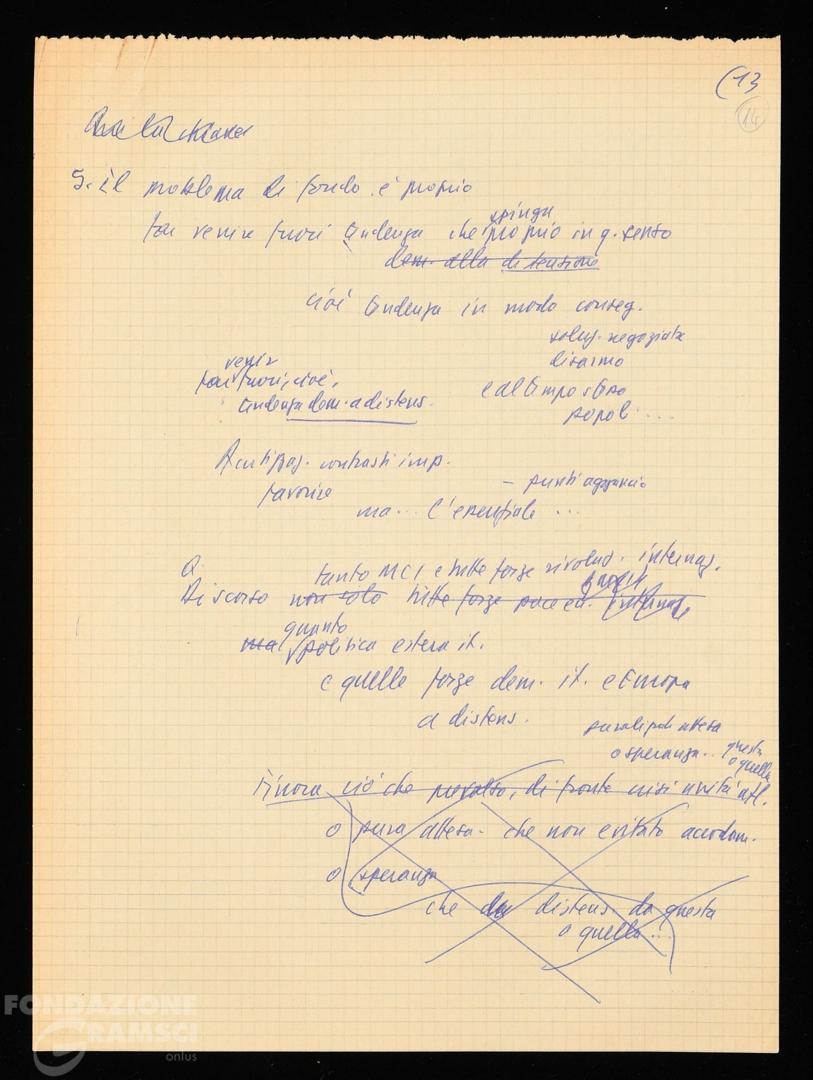 (13
14
5. Il problema di fondo è proprio
far venire fuori tendenza che spinga proprio in q. senso
dem. alla distensione
cioè tendenza in modo conseg.
soluz. negoziata
disarmo
venir
far fuori, cioè,
e al tempo stesso
tendenza dem. a distens.
popoli ...
Acutizzaz. contrasti imp.
favorire
- punti aggancio
ma ... l'essenziale ...
tanto MCI e tutte forze rivoluz. internaz.
Discorso non solo tutte forze pace ed.
quanto
ma politica estera it.
e quelle forze dem. it. e Europa
a distens.
pura attesa
o speranza .. questa
o quella
Finora ciò che prevalso, di fronte crisi unità atl.
o pura attesa - che non evitato accodam.
o speranza
che distens. da questa
o quella ...
FONDAZIONE
GRAMSCI
onlus